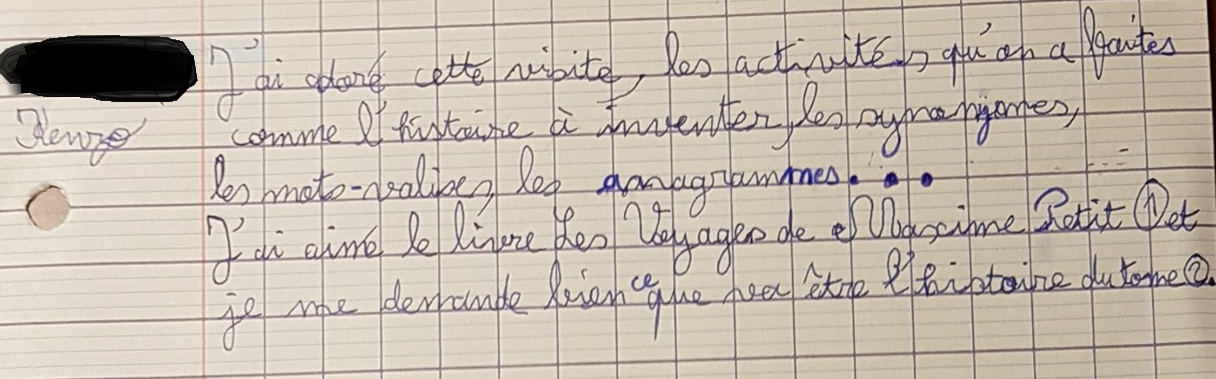 J'ai adoré cette visite, les activités qu'on a faites
Kenzo
comme l'histoire à inventer, les synonymes,
les mots-valises, les anagrammes...
J'ai aimé le livre Les Voyages de Maxime Petit ① et
je me demande bien ce que peu être l'histoire du tome ②.